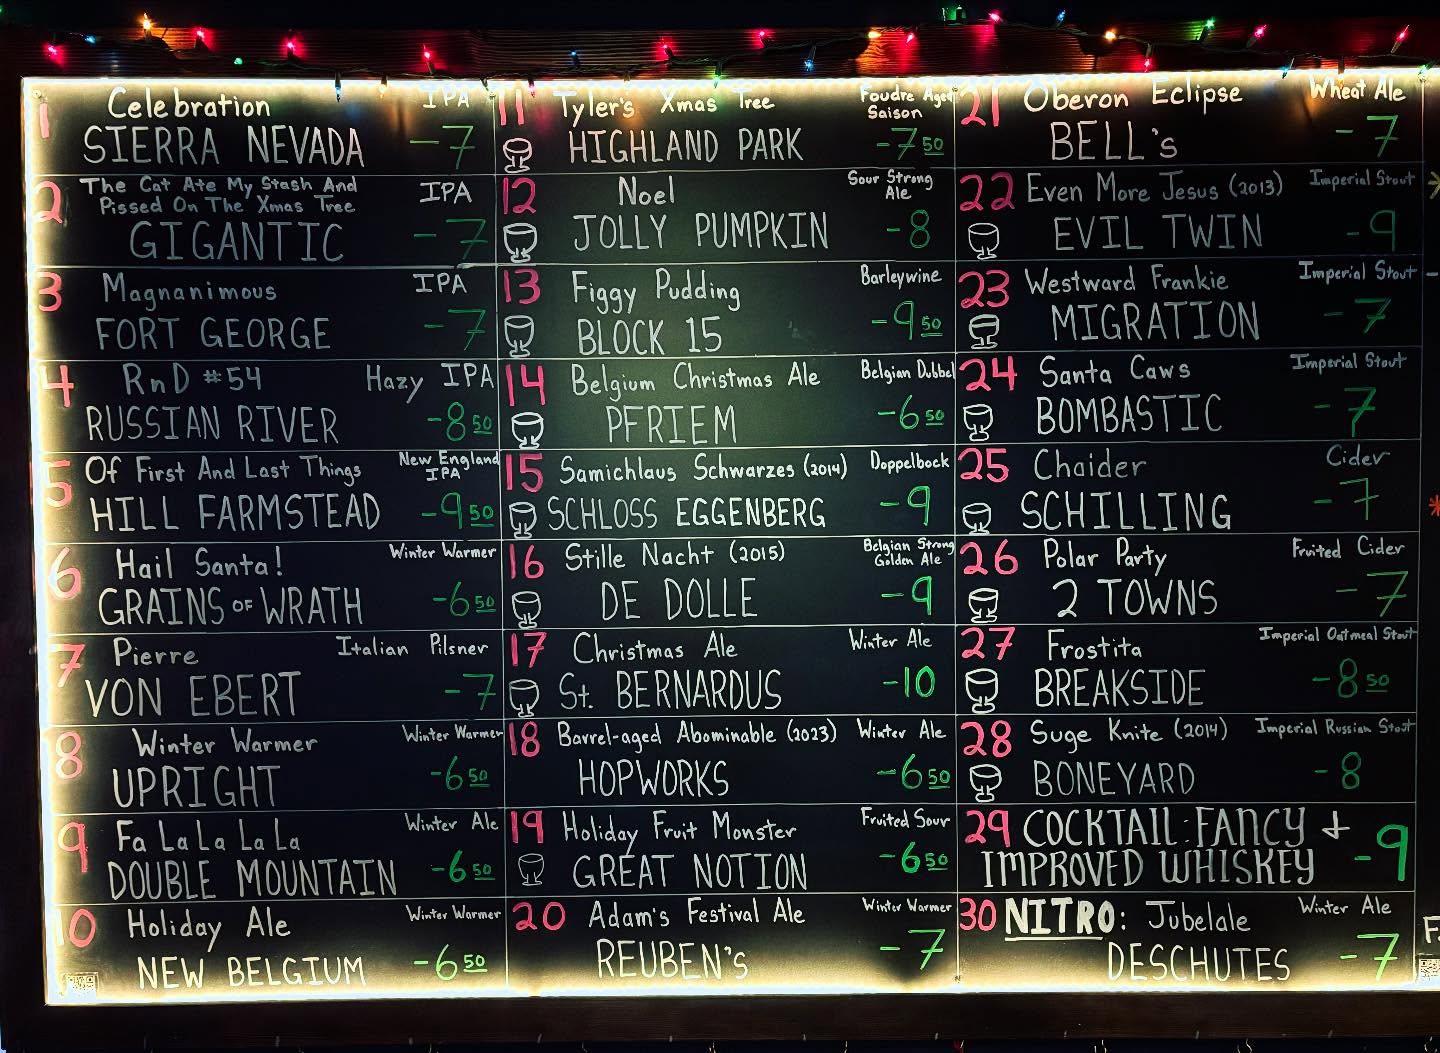 1 Celebration IPA
SIERRA NEVADA -7
2 The Cat Ate My Stash And
Pissed On The Xmas Tree IPA
GIGANTIC -7
3 Magnanimous IPA
FORT GEORGE -7
4 RnD #54 Hazy IPA
RUSSIAN RIVER -8 50
5 Of First And Last Things New England
IPA
HILL FARMSTEAD -9 50
6 Hail Santa! Winter Warmer
GRAINS OF WRATH -6 50
7 Pierre Italian Pilsner
VON EBERT -7
8 Winter Warmer Winter Warmer
UPRIGHT -6 50
9 Fa La La La La Winter Ale
DOUBLE MOUNTAIN -6 50
10 Holiday Ale Winter Warmer
NEW BELGIUM -6 50
11 Tyler's Xmas Tree Foudre Aged
Saison
HIGHLAND PARK -7 50
12 Noel Sour Strong
Ale
JOLLY PUMPKIN -8
13 Figgy Pudding Barleywine
BLOCK 15 -9 50
14 Belgium Christmas Ale Belgian Dubbel
PFRIEM -6 50
15 Samichlaus Schwarzes (2014) Doppelbock
SCHLOSS EGGENBERG -9
16 Stille Nacht (2015) Belgian Strong
Golden Ale
DE DOLLE -9
17 Christmas Ale Winter Ale
St. BERNARDUS -10
18 Barrel-aged Abominable (2023) Winter Ale
HOPWORKS -6 50
19 Holiday Fruit Monster Fruited Sour
GREAT NOTION -6 50
20 Adam's Festival Ale Winter Warmer
REUBEN's -7
21 Oberon Eclipse Wheat Ale
BELL's -7
22 Even More Jesus (2013) Imperial Stout
EVIL TWIN -9
23 Westward Frankie Imperial Stout
MIGRATION -7
24 Santa Caws Imperial Stout
BOMBASTIC -7
25 Chaider Cider
SCHILLING -7
26 Polar Party Fruited Cider
2 TOWNS -7
27 Frostita Imperial Oatmeal Stout
BREAKSIDE -8 50
28 Suge Knite (2014) Imperial Russian Stout
BONEYARD -8
29 COCKTAIL: FANCY +
IMPROVED WHISKEY -9
30 NITRO: Jubelale Winter Ale
DESCHUTES -7